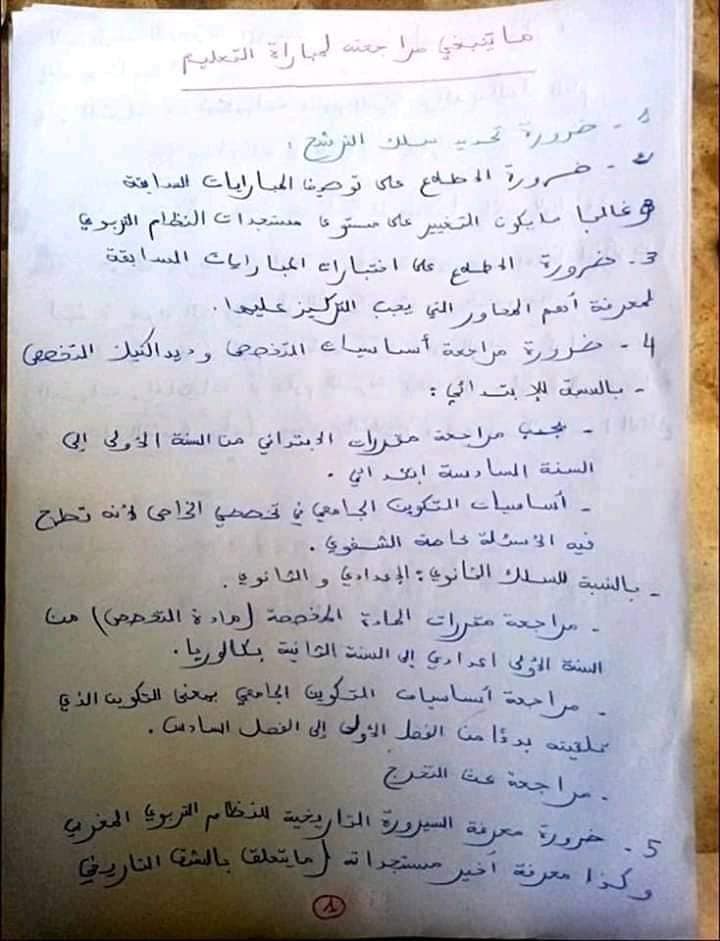 ما ينبغي مراجعته لمباراة التعليم
1 - ضرورة تحديد سلك الترشح :
2 - ضرورة الاطلاع على توصيف المباريات السابقة
وغالبا ما يكون التغيير على مستوى مستجدات النظام التربوي
3 - ضرورة الاطلاع على اختبارات المباريات السابقة
لمعرفة أهم المحاور التي يجب التركيز عليها.
4 - ضرورة مراجعة أساسيات التخصص وديداكتيك التخصص
- بالنسبة للإبتدائي :
- يجب مراجعة مقررات الابتدائي من السنة الأولى إلى
السنة السادسة ابتدائي .
- أساسيات التكوين الجامعي في تخصصي الخاص لأنه تطرح
فيه الأسئلة خاصة الشفوي .
- بالنسبة للسلك الثانوي : الإعدادي و الثانوي .
- مراجعة مقررات المادة المخصصة (مادة التخصص) من
السنة الأولى اعدادي إلى السنة الثانية بكالوريا .
- مراجعة أساسيات التكوين الجامعي بمعنى التكوين الذي
تلقيته بدءًا من الفصل الأولى إلى الفصل السادس .
- مراجعة بحث التخرج
5 - ضرورة معرفة السيرورة التاريخية للنظام التربوي المغربي
وكذا معرفة أخير مستجداته (ما يتعلق بالشق التاريخي
1